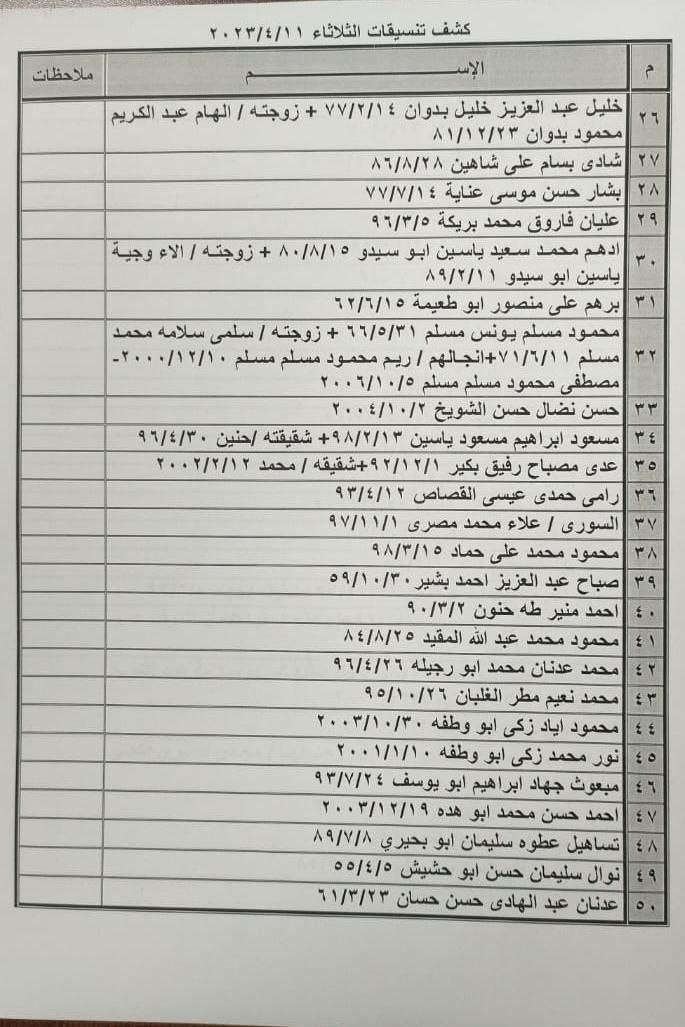 كشف تنسيقات الثلاثاء ٢٠٢٣/٤/١١
م الإســـــــــــــــــــم ملاحظات
٢٦ خليل عبد العزيز خليل بدوان ٧٧/٢/١٤ + زوجته / الهام عبد الكريم
محمود بدوان ٨١/١٢/٢٣
٢٧ شادى بسام على شاهين ٨٦/٨/٢٨
٢٨ بشار حسن موسى عناية ٧٧/٧/١٤
٢٩ عليان فاروق محمد بريكة ٩٦/٣/٥
٣٠ ادهم محمد سعيد ياسين ابو سيدو ٨٠/٨/١٥ + زوجته / الاء وجية
ياسين ابو سيدو ٨٩/٢/١١
٣١ برهم على منصور ابو طعيمة ٦٢/٦/١٥
٣٢ محمود مسلم يونس مسلم ٦٦/٥/٣١ + زوجته / سلمى سلامه محمد
مسلم ٧١/٦/١١+انجالهم / ريم محمود مسلم مسلم ٢٠٠٠/١٢/١٠-
مصطفى محمود مسلم مسلم ٢٠٠٦/١٠/٥
٣٣ حسن نضال حسن الشويخ ٢٠٠٤/١٠/٢
٣٤ مسعود ابراهيم مسعود ياسين ٩٨/٢/١٣+ شقيقته /حنين ٩٦/٤/٣٠
٣٥ عدى مصباح رفيق بكير ٩٢/١٢/١+شقيقه / محمد ٢٠٠٢/٢/١٢
٣٦ رامى حمدى عيسى القصاص ٩٣/٤/١٢
٣٧ السورى / علاء محمد مصرى ٩٧/١١/١
٣٨ محمود محمد على حماد ٩٨/٣/١٥
٣٩ صباح عبد العزيز احمد بشير ٥٩/١٠/٣٠
٤٠ احمد منير طه حنون ٩٠/٣/٢
٤١ محمود محمد عبد الله المقيد ٨٤/٨/٢٥
٤٢ محمد عدنان محمد ابو رجيله ٩٦/٤/٢٦
٤٣ محمد نعيم مطر الغلبان ٩٥/١٠/٢٦
٤٤ محمود اياد زكى ابو وطفه ٢٠٠٣/١٠/٣٠
٤٥ نور محمد زكى ابو وطفه ٢٠٠١/١/١٠
٤٦ مبعوث جهاد ابراهيم ابو يوسف ٩٣/٧/٢٤
٤٧ احمد حسن محمد ابو هده ٢٠٠٣/١٢/١٩
٤٨ تساهيل عطوه سليمان ابو بحيري ٨٩/٧/٨
٤٩ نوال سليمان حسن ابو حشيش ٥٥/٤/٥
٥٠ عدنان عبد الهادى حسن حسان ٦١/٣/٢٣